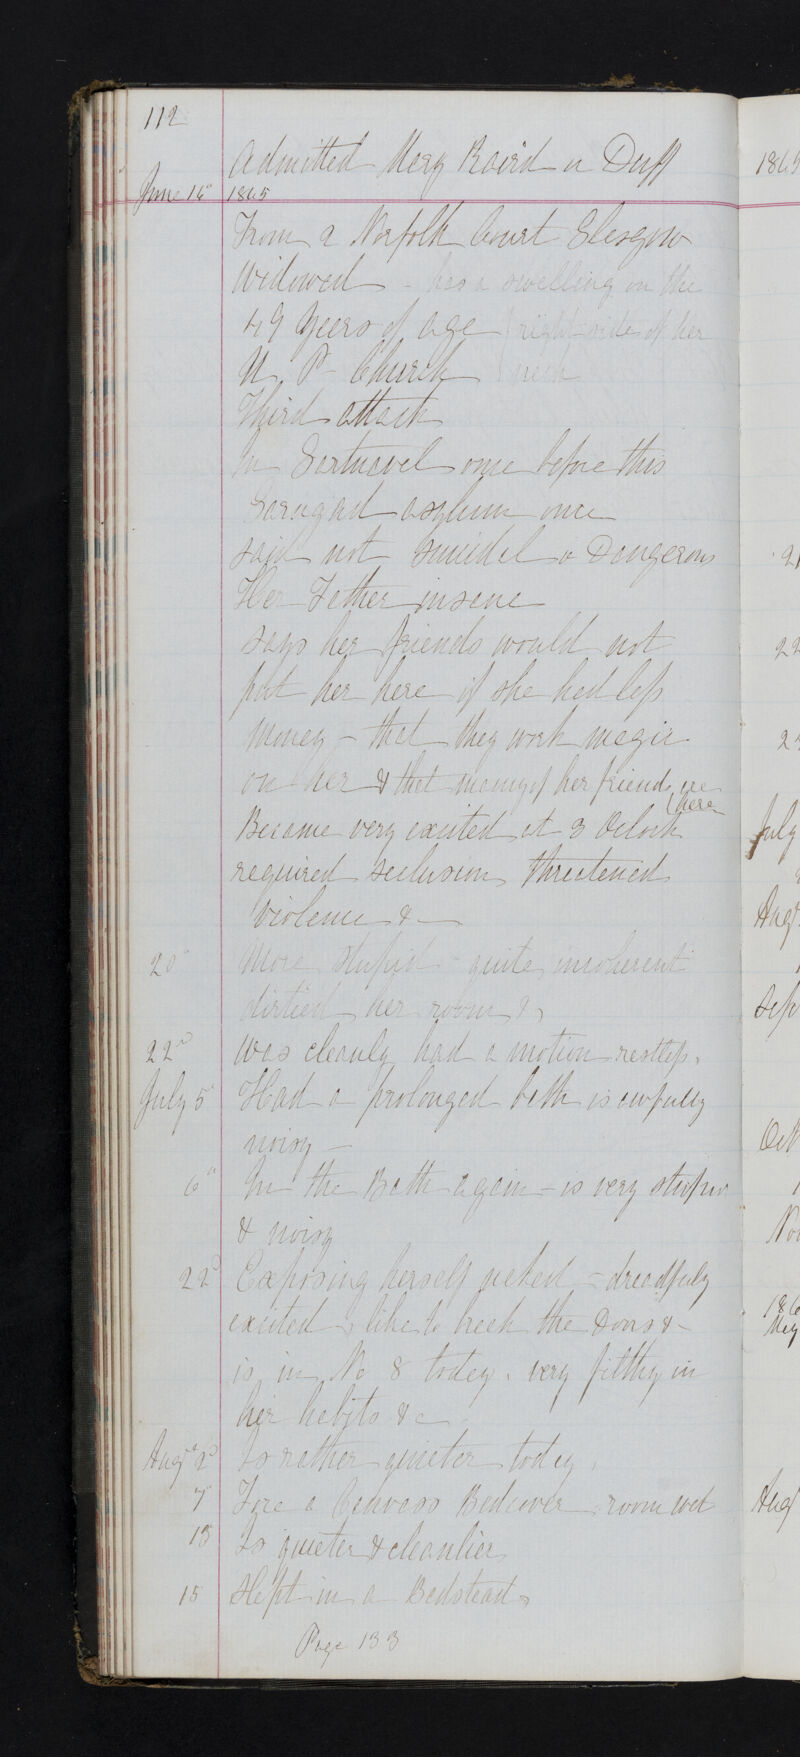 112
Admitted Mary Baird or Duff
June 16th 1865
From 2 Norfolk Court Glasgow
Widowed - has a swelling on the
49 Years of age right side of her
U P Church neck
Third attack
In Gartnavel once before this
Garngad asylum once
said not suicidal or Dangerous
Her Father insane
says her friends would not
put her here if she had less
money - that they work magic
on her & that many of her friends are
here
Became very excited at 3 Oclock
required seclusion threatened
violence &
20th More stupid quite incoherent
dirtied her room &
22d was cleanly had a motion restless.
July 5th Had a prolonged bath is awfully
noisy -
6th In the Bath again - is very stupid
& noisy
22d Exposing herself naked - dreadfuly
excited, like to break the doors & -
is in No 8 today. very filthy in
her habits &c -
Augt 2d Is rather quieter today.
7 Tore a Canvass Bedcover room wet
13 Is quieter & cleanlier
15 Slept in a Bedstead
Page 133
1865
21
22
July
Augt
Sep
Oct
Nov
186
May
Aug